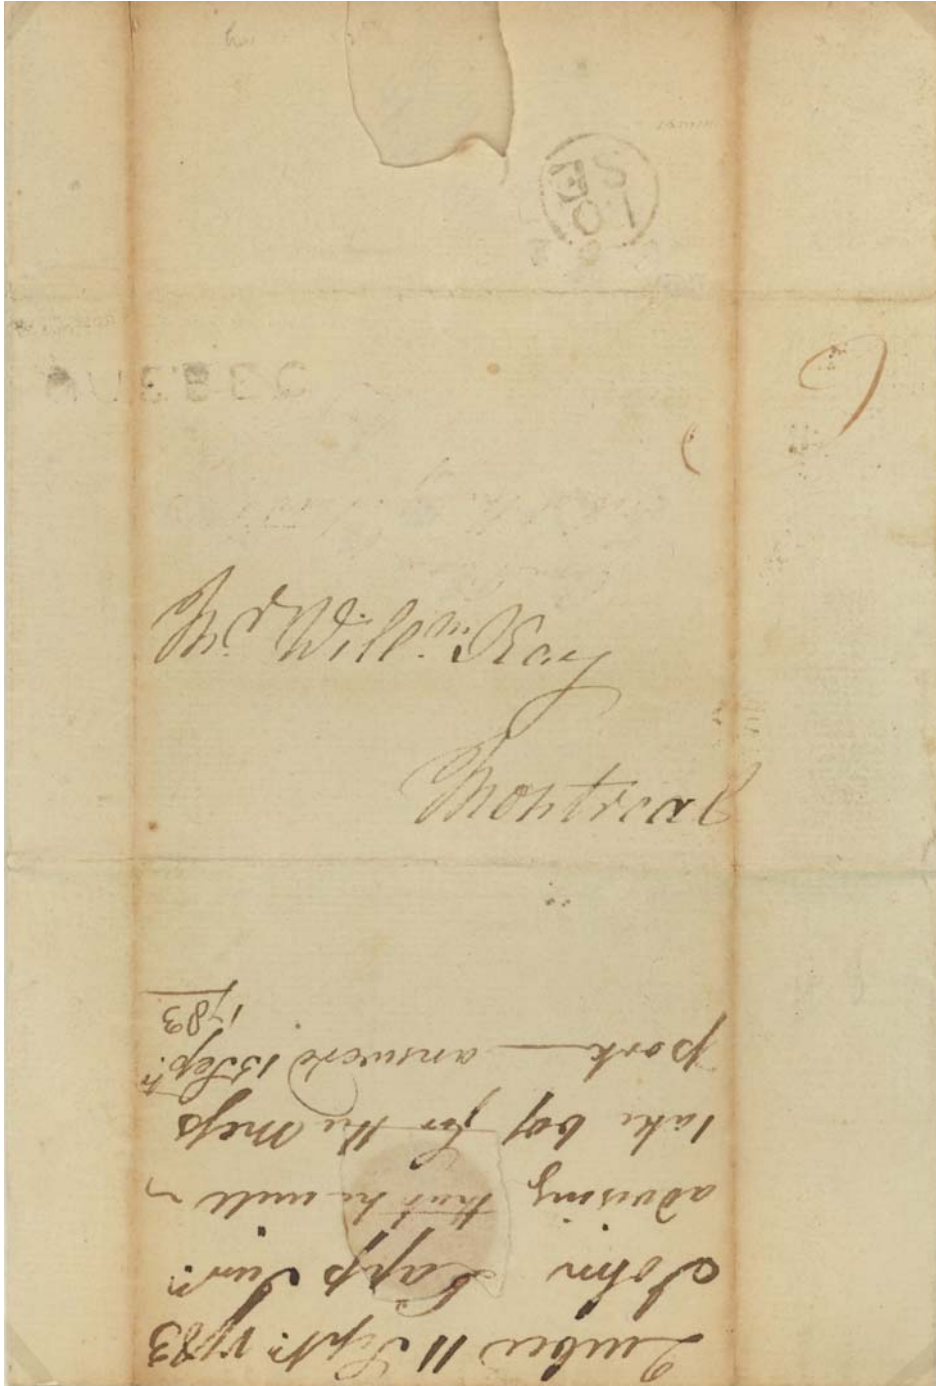 QUEBEC
Mr. Willm. Kay
Montreal
Quebec 11 Septr. 1783
John Lapp Junr.
advising that he will
take 60/ for the Mess
pork — answerd 15 Sepr.
1783